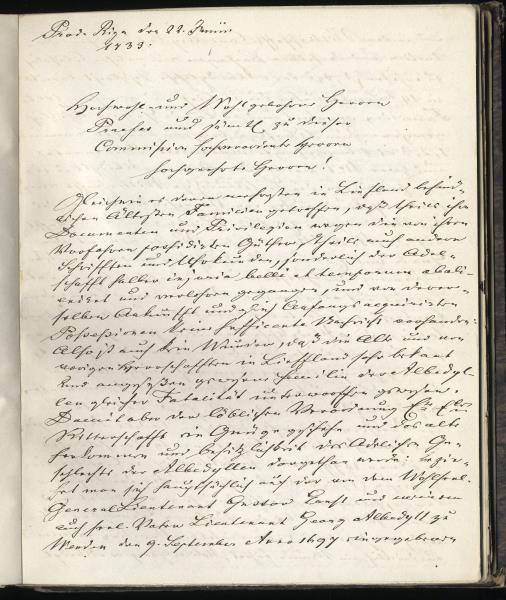 Prod. Riga den 22. Junii
1733.
Hochwohl- und Wohlgebohrne Herren
Praeses und sämtl. zu dieser
Commission hochverordnete Herren
Hochgeehrte Herren!
Gleichwie es denen mehrsten in Liefland befind-
lichen Ältesten Familien getroffen, daß theils ihre
Documenten und Privilegien wegen die von ihren
Vorfahren possidirten Güther, theils auch andere
Schrifften und Uhrkunden, sonderlich der Adel-
schafft halber injuria belli et temporum abali-
eniret und verlohren gegangen, und von derer-
selben Ankunfft und Anfangs acquirirten
Possessionen keine sufficente Nachricht vorhanden:
Also ist auch kein Wunder, daß die Alte und von
vorigen Herrschafften in Liefland sehr bekant
und angesehen gewesene Familie der Albedyl-
len gleicher Fatalität unterworffen gewesen.
Damit aber der löblichen Verordnung Er. Edl.
Ritterschafft ein Genüge geschehe und das alte
Herkommen und des Adelichen Ge-
schlechts der Albedyllen dargethan werde: bezie-
het man sich hauptsächlich auf der von dem Wohlseel.
General Lieutenant Gustav Ernst und meinem
auch seel. Vater Lieutenant Georg Albedyll zu
Wenden den 9. September Anno 1697 eingegebenen